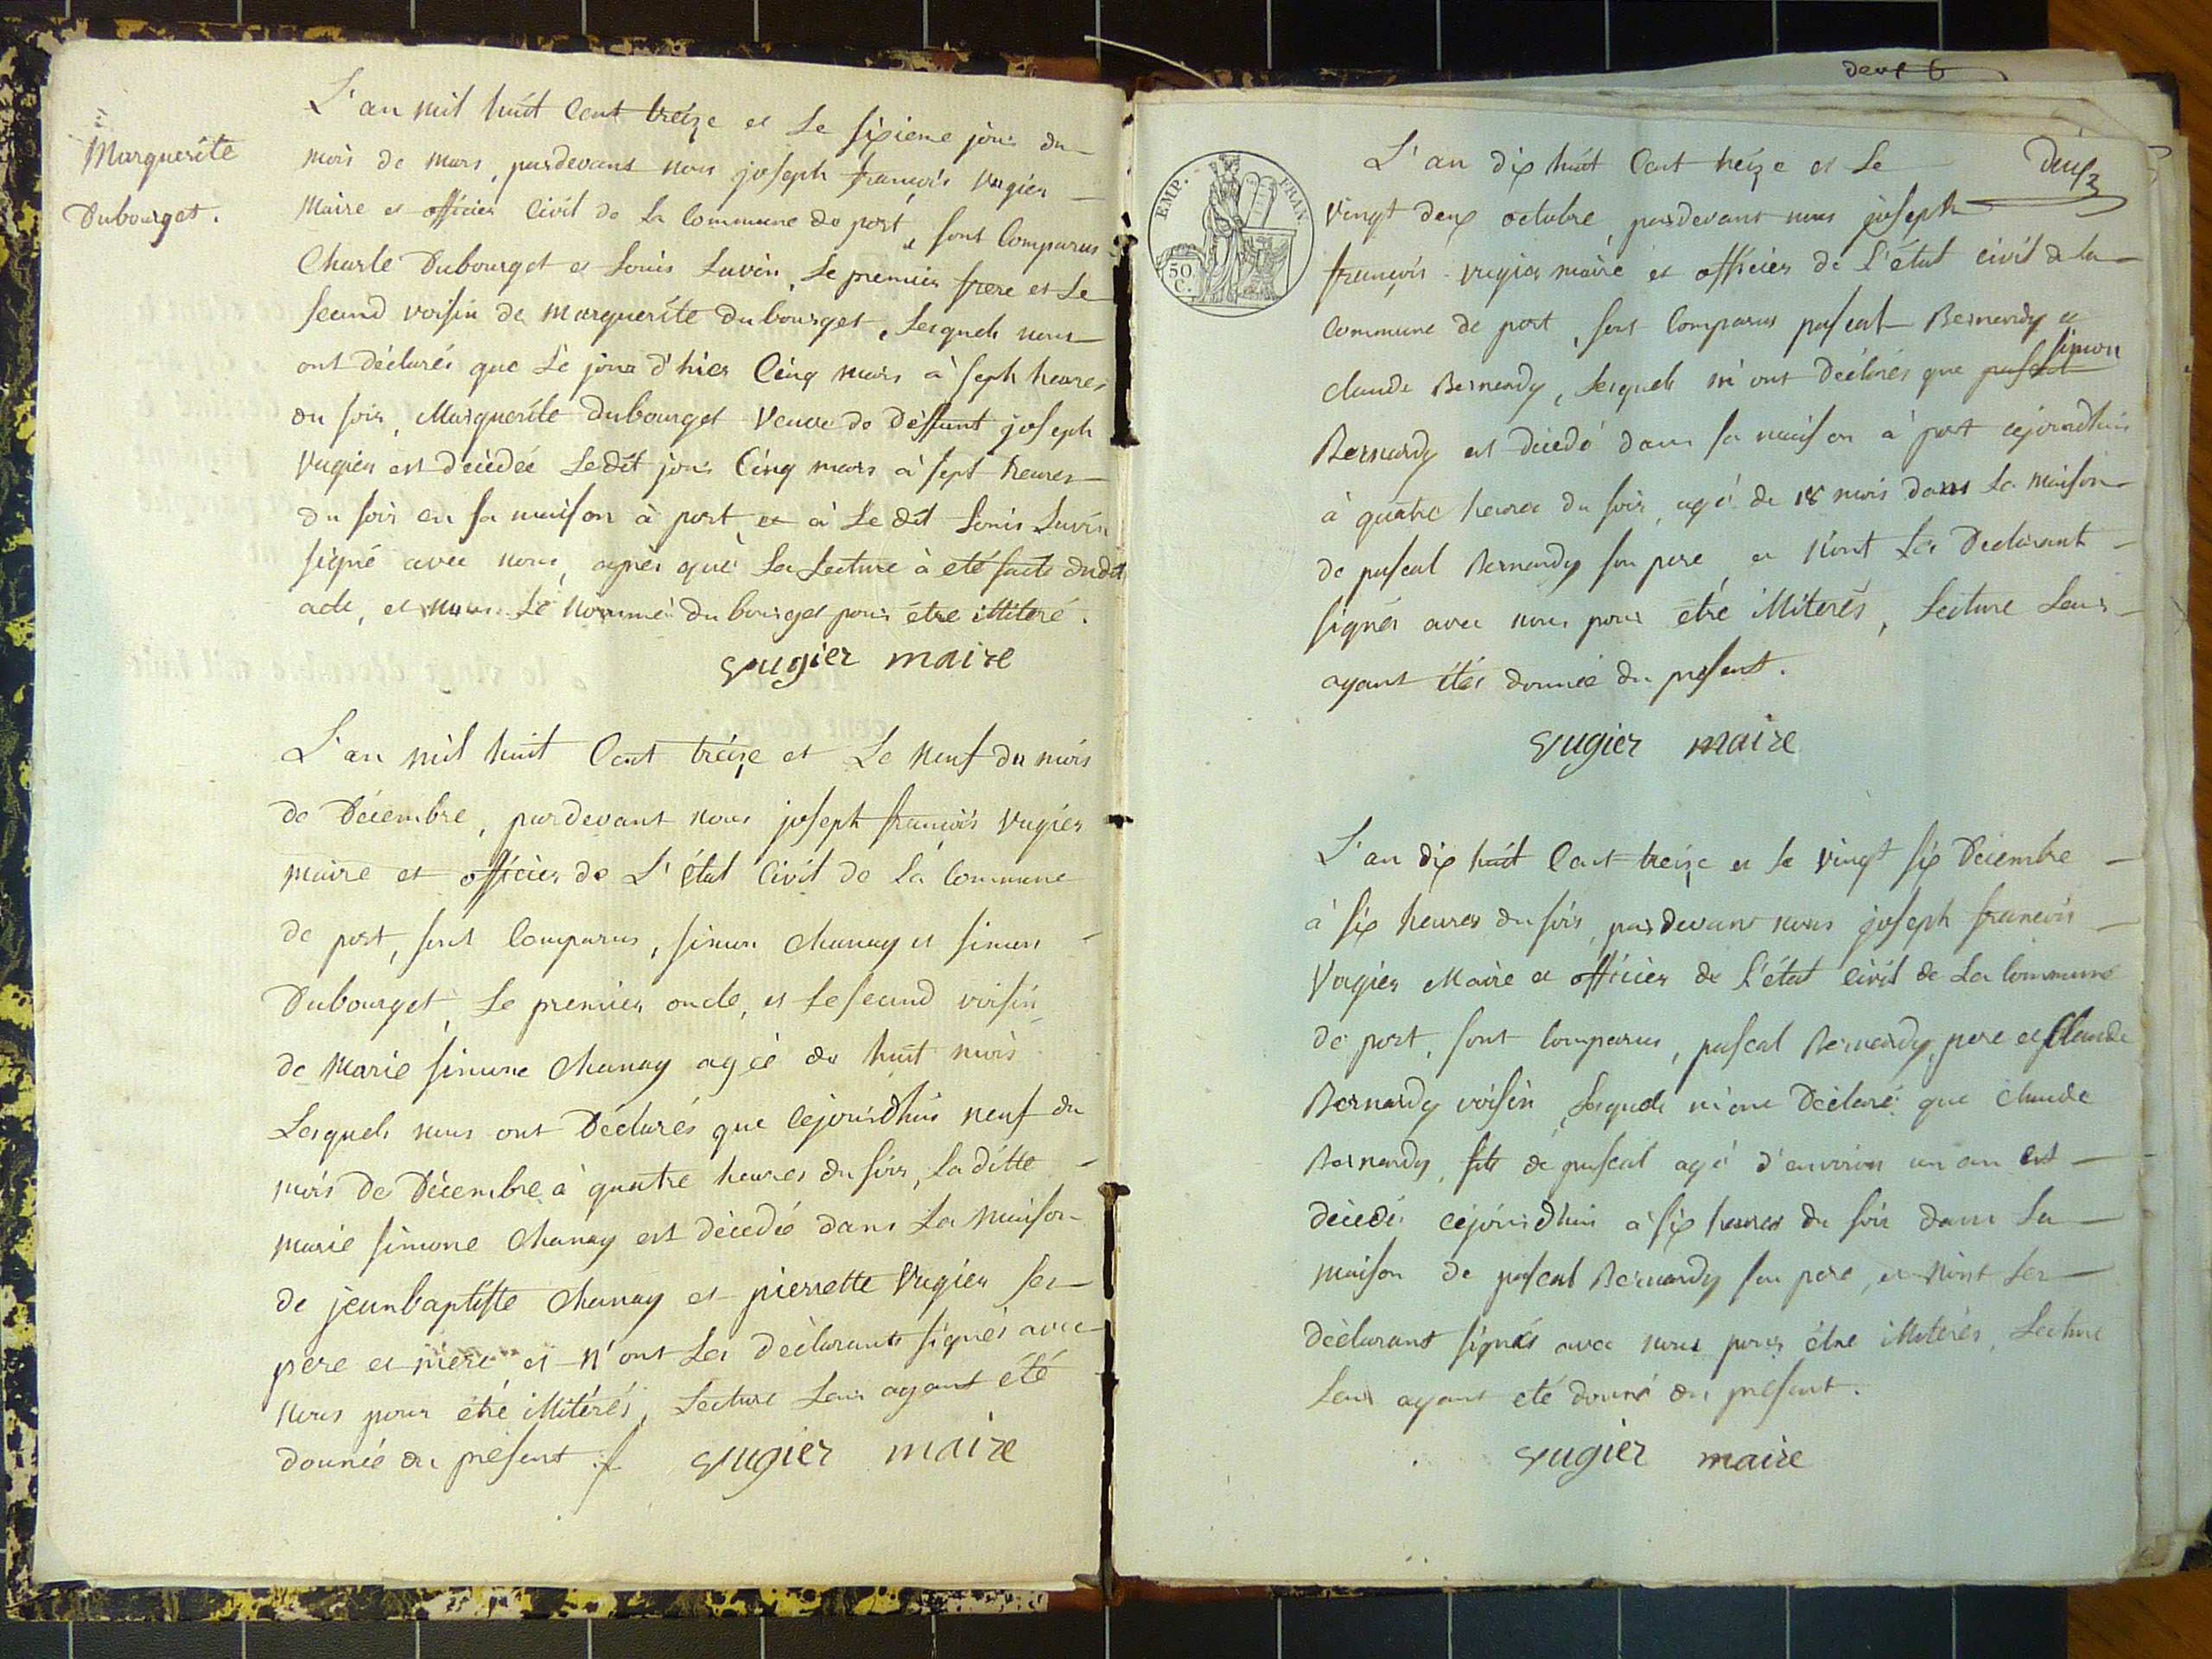 Marguerite
Dubourget.
L'an mil huit Cent treize et Le sixieme jour du
mois de mars, pardevant nous joseph françois Vugier
Maire et officier Civil de La Commune de port, sont Comparus
Charle Dubourget et Louis Luvin, Le premier frere et Le
second voisin de Marguerite dubourget, Lesquels nous
ont déclarés que Le jour d'hier Cinq mars à seph heures
du soir, Marguerite Dubourget Veuve de déffunt joseph
Vugier est décédée Ledit jour Cinq mars à sept heures
du soir en sa maison à port et à Le dit Louis Luvin
signé avec nous, après que La Lecture à eté faite dudit
acte, et Le nommé du bourget pour être illiteré.
Vugier maire
L'an mil huit Cent treize et Le neuf du mois
de Décembre, pardevant nous joseph françois Vugier
maire et officier de L'état Civil de La Commune
de port, sont Comparus, simon Chanay et simon
Dubourget, Le premier oncle, et Le second voisin
de Marie simone Chanay agée de huit mois
Lesquels nous ont Déclarés que Cejourdhui neuf du
mois de Décembre à quatre heures du soir, La ditte
Marie simone Chanay est décedée dans La Maison
de jeanbaptiste Chanay et pierrette Vugier ses
pere et mere et n'ont Les déclarants signés avec
nous pour étre illitérés, Lecture Leur ayant été
donnée du présent.
Vugier maire
deux
L'an dix huit Cent treize et Le
vingt deux octobre, pardevant nous joseph
françois vugier maire et officier de L'état civil de la
Commune de port, sont Comparus pascal Bernardy et
simon
claude Bernardy, Lesquels m'ont Déclarés que pascal
Bernardy est décédé dans sa maison à port cejourdhui
à quatre heures du soir, agé de 18 mois dans La maison
de pascal Bernardy son pere, et n'ont Les Declarant
signés avec nous pour etre illiterés, Lecture Leur
ayant étés donnée du present.
Vugier maire
L'an dix huit Cent treize et le vingt six Décembre
à six heures du soir, pardevant nous joseph francois
Vugier Maire et officier de L'état civil de La Commune
de port, sont Comparus, pascal Bernardy, pere et Claude
Bernardy voisin, Lesquels m'ont Déclaré que Claude
Bernardy, fils de pascal agé d'environ un an est
décédé cejourdhui à six heures du soir dans La
maison de pascal Bernardy son pere, et n'ont Les
déclarant signés avec nous pour être illiterés, Lecture
Leur ayant eté donné du présent.
Vugier maire
EMP. FRAN.
50
C.